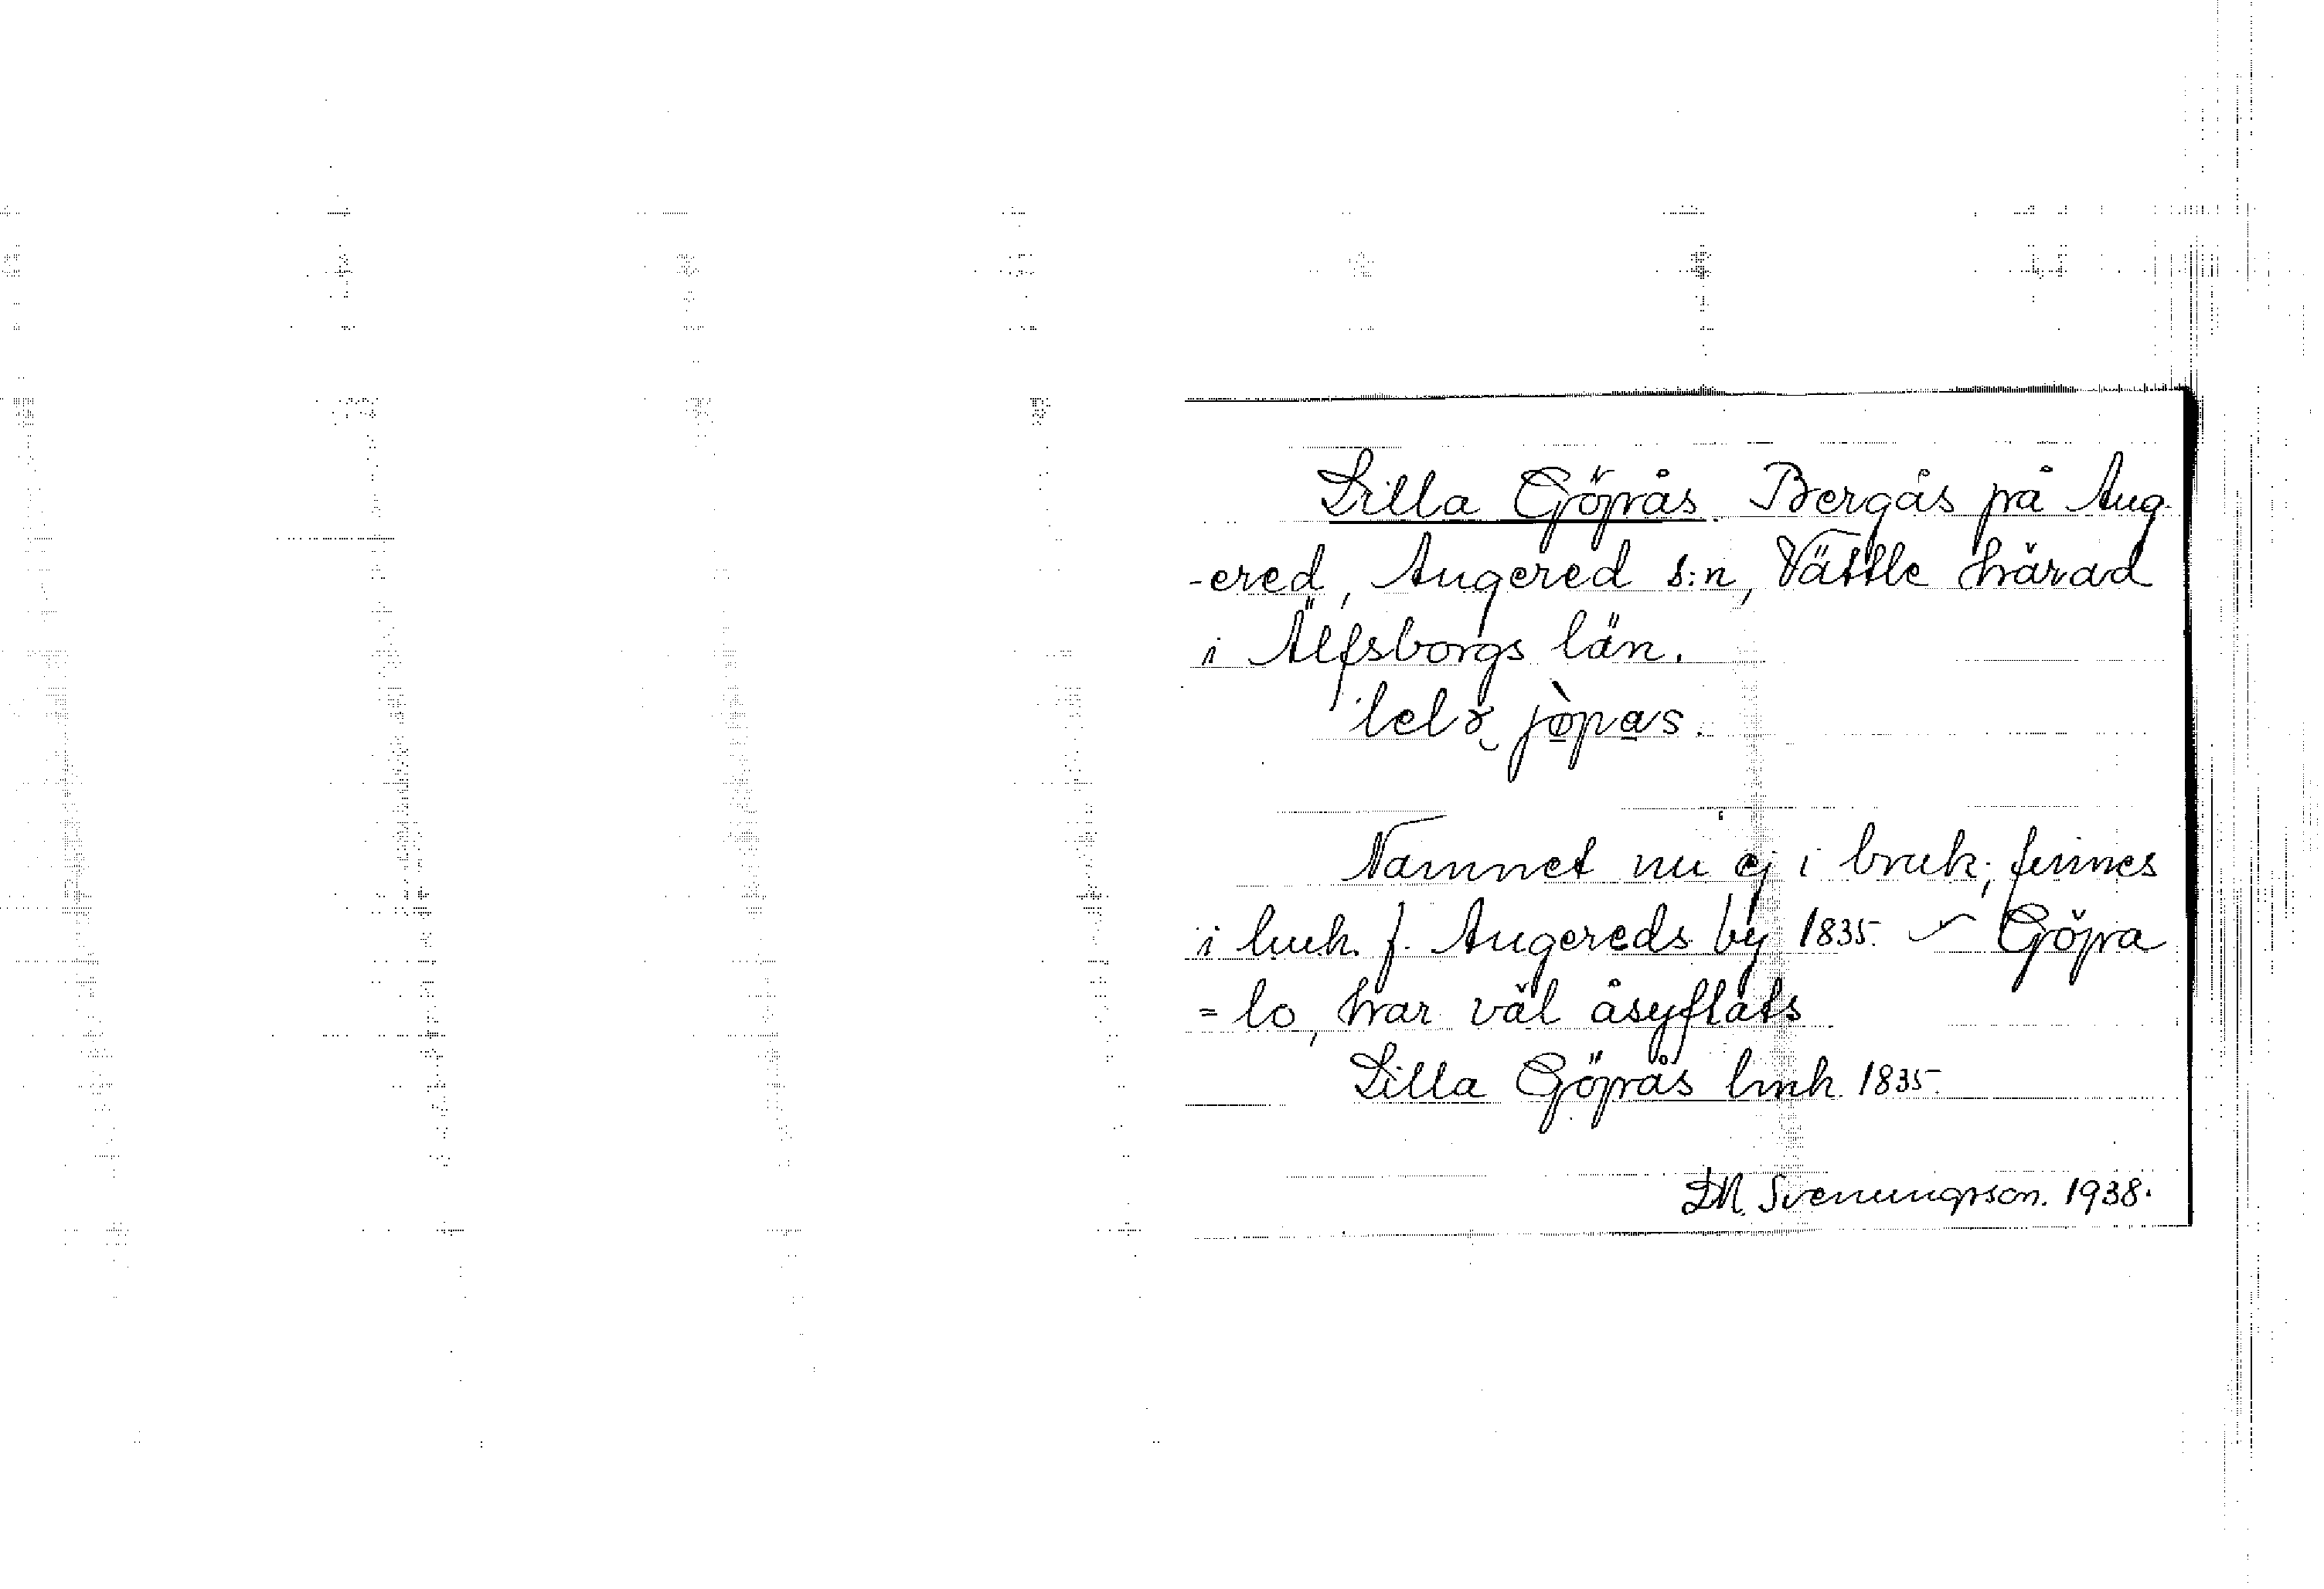 Lilla Göpås. Bergås på Ang-
-ered, Angered s:n, Vättle härad
i Älfsborgs län.
lelɤ jòpas.
Namnet nu ej i bruk; finnes
i lmh. f. Angereds by 1835. Göpa
= lo, har väl åsyftats
Lilla Göpås lmh. 1835.
D.M. Svenungsson. 1938.